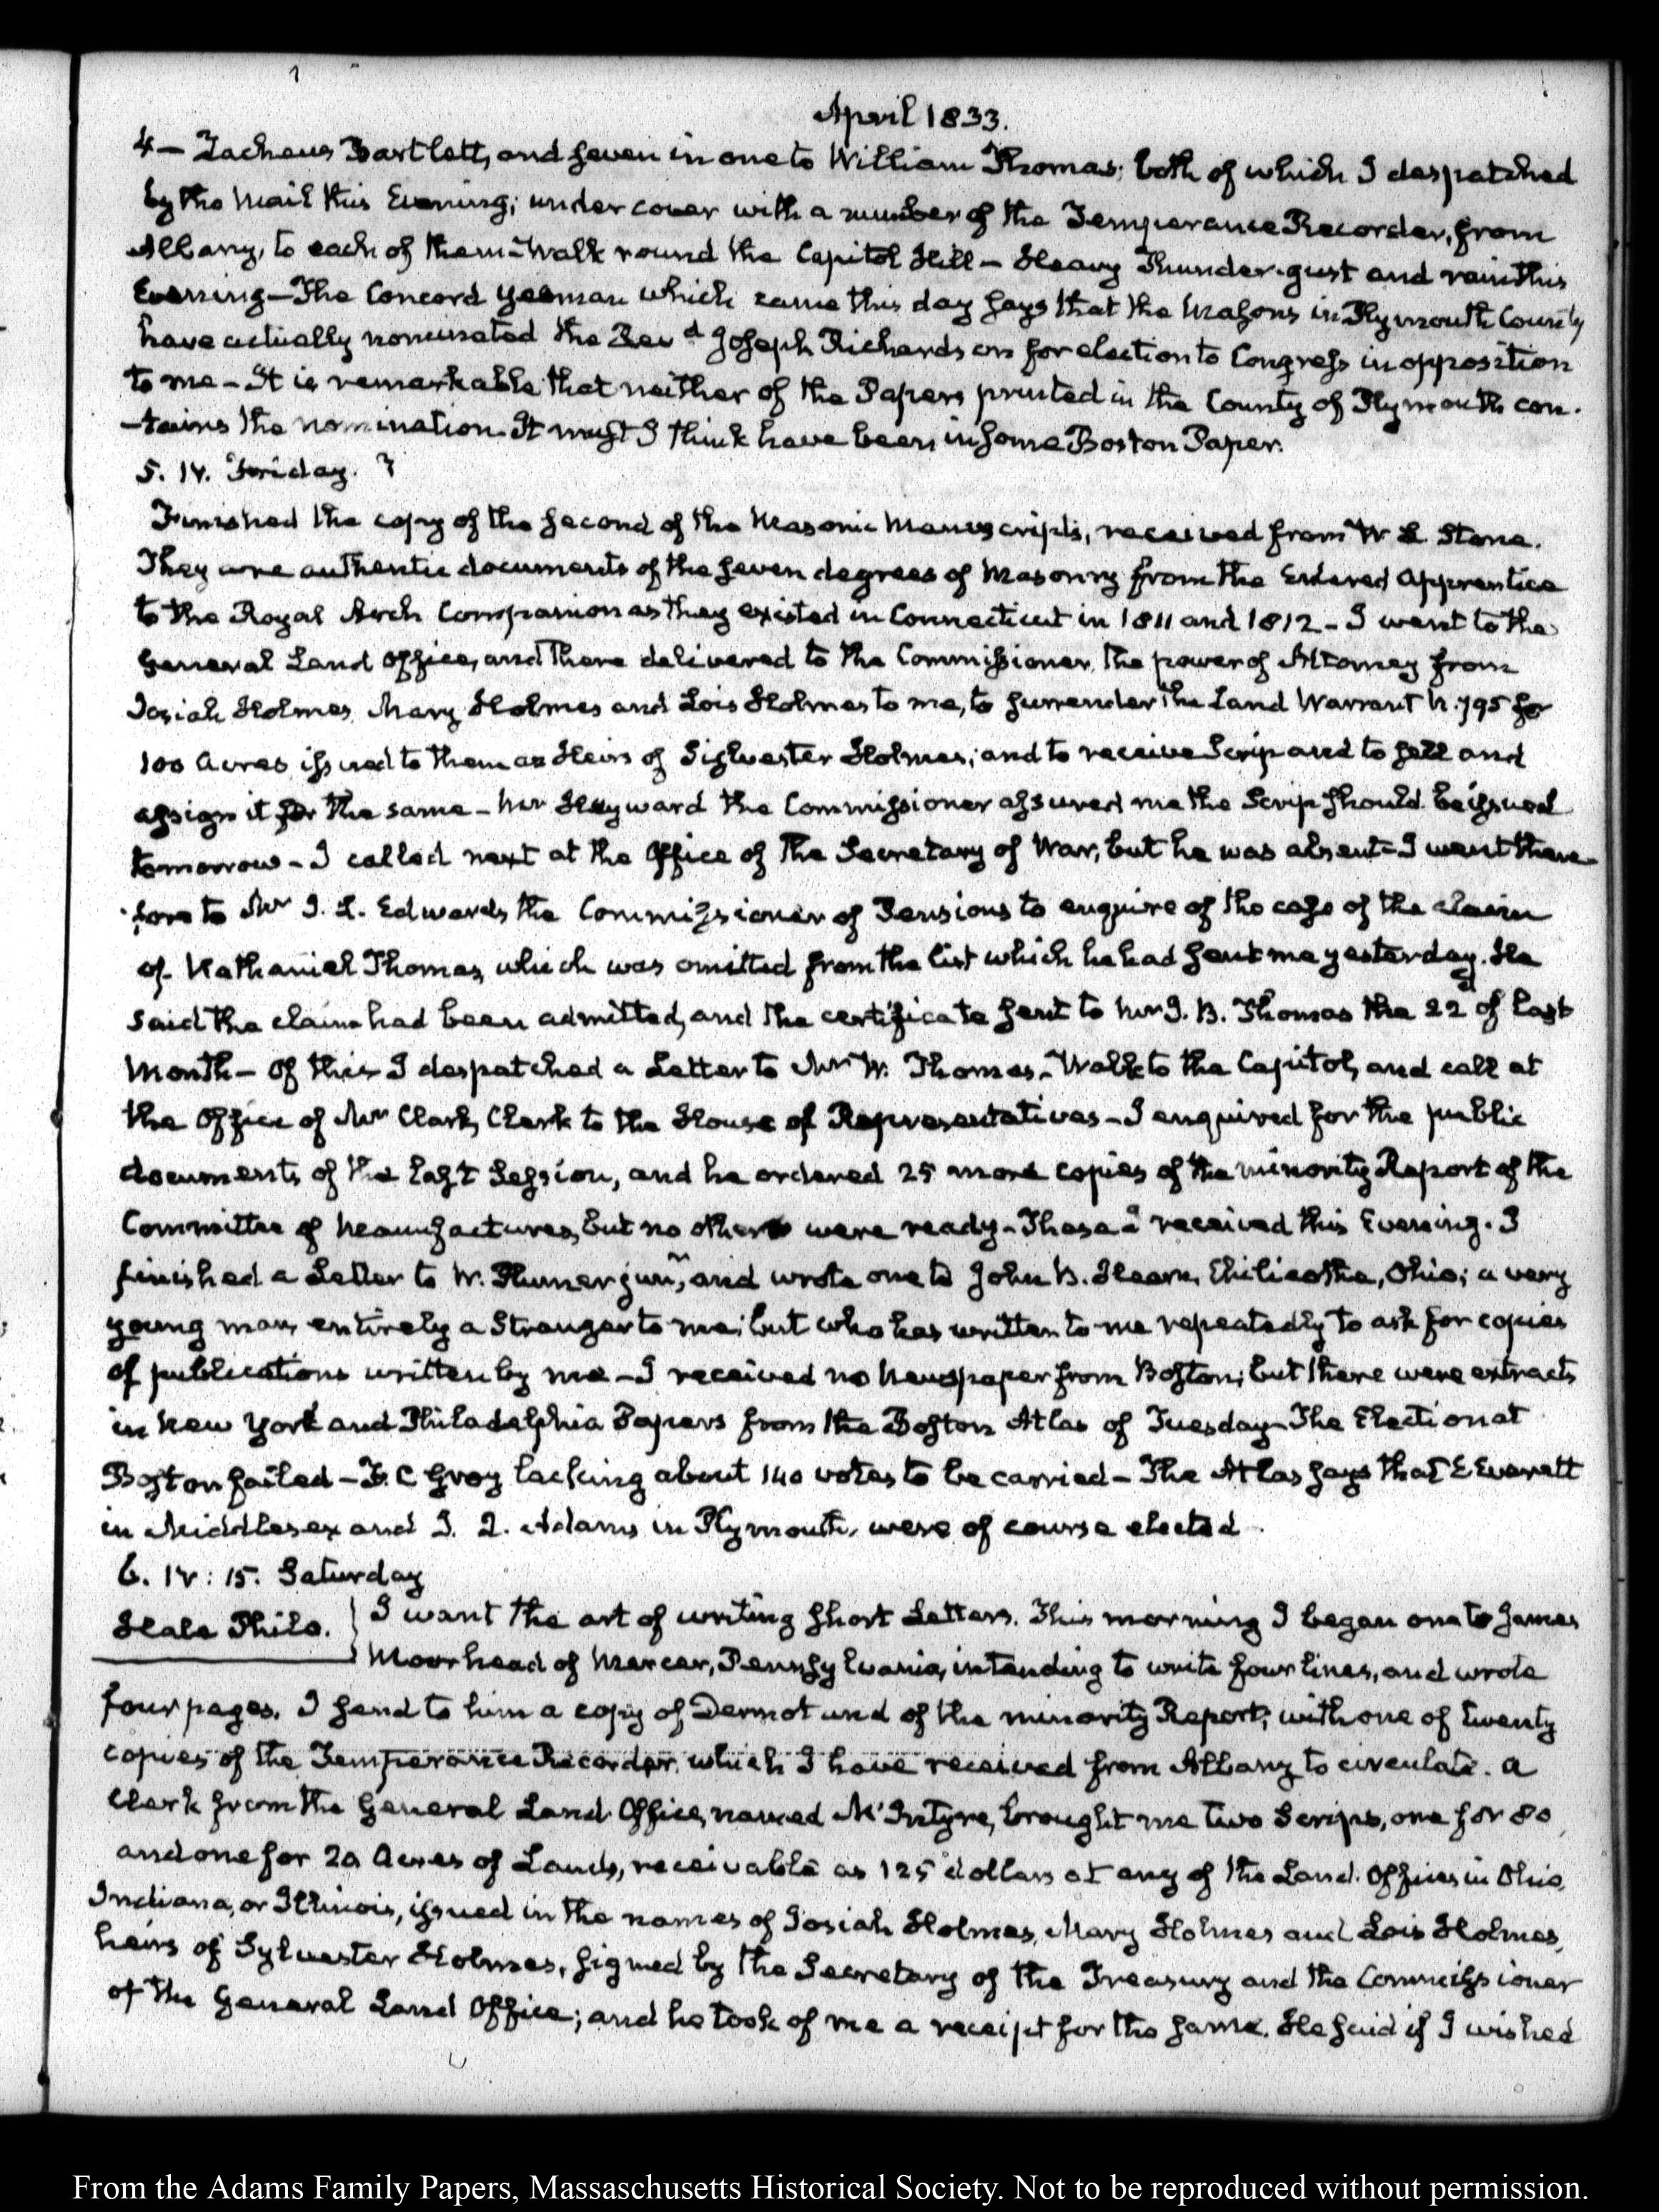 April 1833.
4 — Zacheus Bartlett, and seven in one to William Thomas; both of which I despatched
by the Mail this Evening; under cover with a number of the Temperance Recorder, from
Albany, to each of them – Walk round the Capitol Hill – Heavy Thunder-gust and rain this
Evening – The Concord Yeoman which came this day says that the Masons in Plymouth County
have actually nominated the Revd Joseph Richardson for election to Congress in opposition
to me – It is remarkable that neither of the Papers printed in the County of Plymouth con-
-tains the nomination. It must I think have been in some Boston Paper.
5. IV. Friday.
Finished the copy of the second of the Masonic Manuscripts, received from W. L. Stone.
They are authentic documents of the seven degrees of Masonry from the Entered Apprentice
to the Royal Arch Companion as they existed in Connecticut in 1811 and 1812 – I went to the
General Land Office, and there delivered to the Commissioner, the power of Attorney from
Josiah Holmes, Mary Holmes and Lois Holmes to me, to surrender the Land Warrant N. 795 for
100 Acres issued to them as Heirs of Silvester Holmes; and to receive Scrip and to sell and
assign it for the same – Mr Hayward the Commissioner assured me the Scrip should be issued
tomorrow – I called next at the Office of the Secretary of War, but he was absent – I went there-
-fore to Mr J. L. Edwards the Commissioner of Pensions to enquire of the case of the claim
of Nathaniel Thomas, which was omitted from the list which he had sent me yesterday. He
said the claim had been admitted, and the certificate sent to Mr J. B. Thomas the 22d of last
Month – Of this I despatched a Letter to Mr W. Thomas – Walk to the Capitol, and call at
the Office of Mr Clark, Clerk to the House of Representatives – I enquired for the public
documents of the last Session, and he ordered 25 more copies of the minority Report of the
Committee of Manufactures, but no others were ready – These I received this Evening. I
finished a Letter to W. Plumer junr, and wrote one to John B. Hearn, Chilicothe, Ohio; a very
young man, entirely a Stranger to me; but who has written to me repeatedly to ask for copies
of publications written by me – I received no Newspaper from Boston; but there were extracts
in New York and Philadelphia Papers from the Boston Atlas of Tuesday – The Election at
Boston failed – F. C Gray lacking about 140 votes to be carried – The Atlas says that E Everett
in Middlesex and J. Q. Adams in Plymouth, were of course elected.
6. IV: 15. Saturday
Hale Philo.
I want the art of writing short Letters. This morning I began one to James
Moorhead of Mercer, Pennsylvania, intending to write four lines, and wrote
four pages. I send to him a copy of Dermot and of the minority Report; with one of twenty
copies of the Temperance Recorder which I have received from Albany to circulate. A
Clerk from the General Land Office, named McIntyre, brought me two Scrips, one for 80
and one for 20 Acres of Lands, receivable as 125 dollars at any of the Land Offices in Ohio,
Indiana, or Illinois, issued in the names of Josiah Holmes, Mary Holmes and Lois Holmes,
heirs of Sylvester Holmes, signed by the Secretary of the Treasury and the Commissioner
of the General Land Office; and he took of me a receipt for the same. He said if I wished
From the Adams Family Papers, Massachusetts Historical Society. Not to be reproduced without permission.